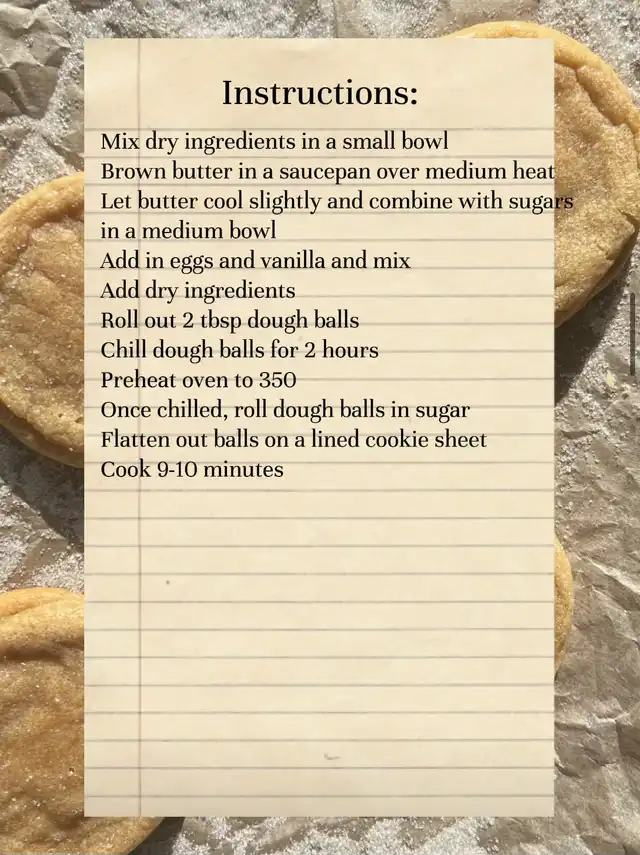 Instructions:
Mix dry ingredients in a small bowl
Brown butter in a saucepan over medium heat
Let butter cool slightly and combine with sugars
in a medium bowl
Add in eggs and vanilla and mix
Add dry ingredients
Roll out 2 tbsp dough balls
Chill dough balls for 2 hours
Preheat oven to 350
Once chilled, roll dough balls in sugar
Flatten out balls on a lined cookie sheet
Cook 9-10 minutes